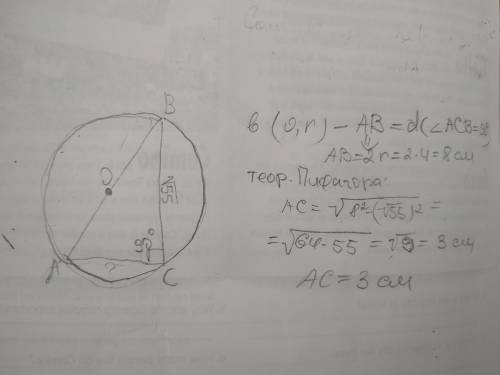 B
O
√55
90°
A
?
C
в (O, r) – AB = d (∠ACB = 90°)
AB = 2r = 2·4 = 8 см
теор. Пифагора:
AC = √8² – (√55)² =
= √64 - 55 = √9 = 3 см
AC = 3 см